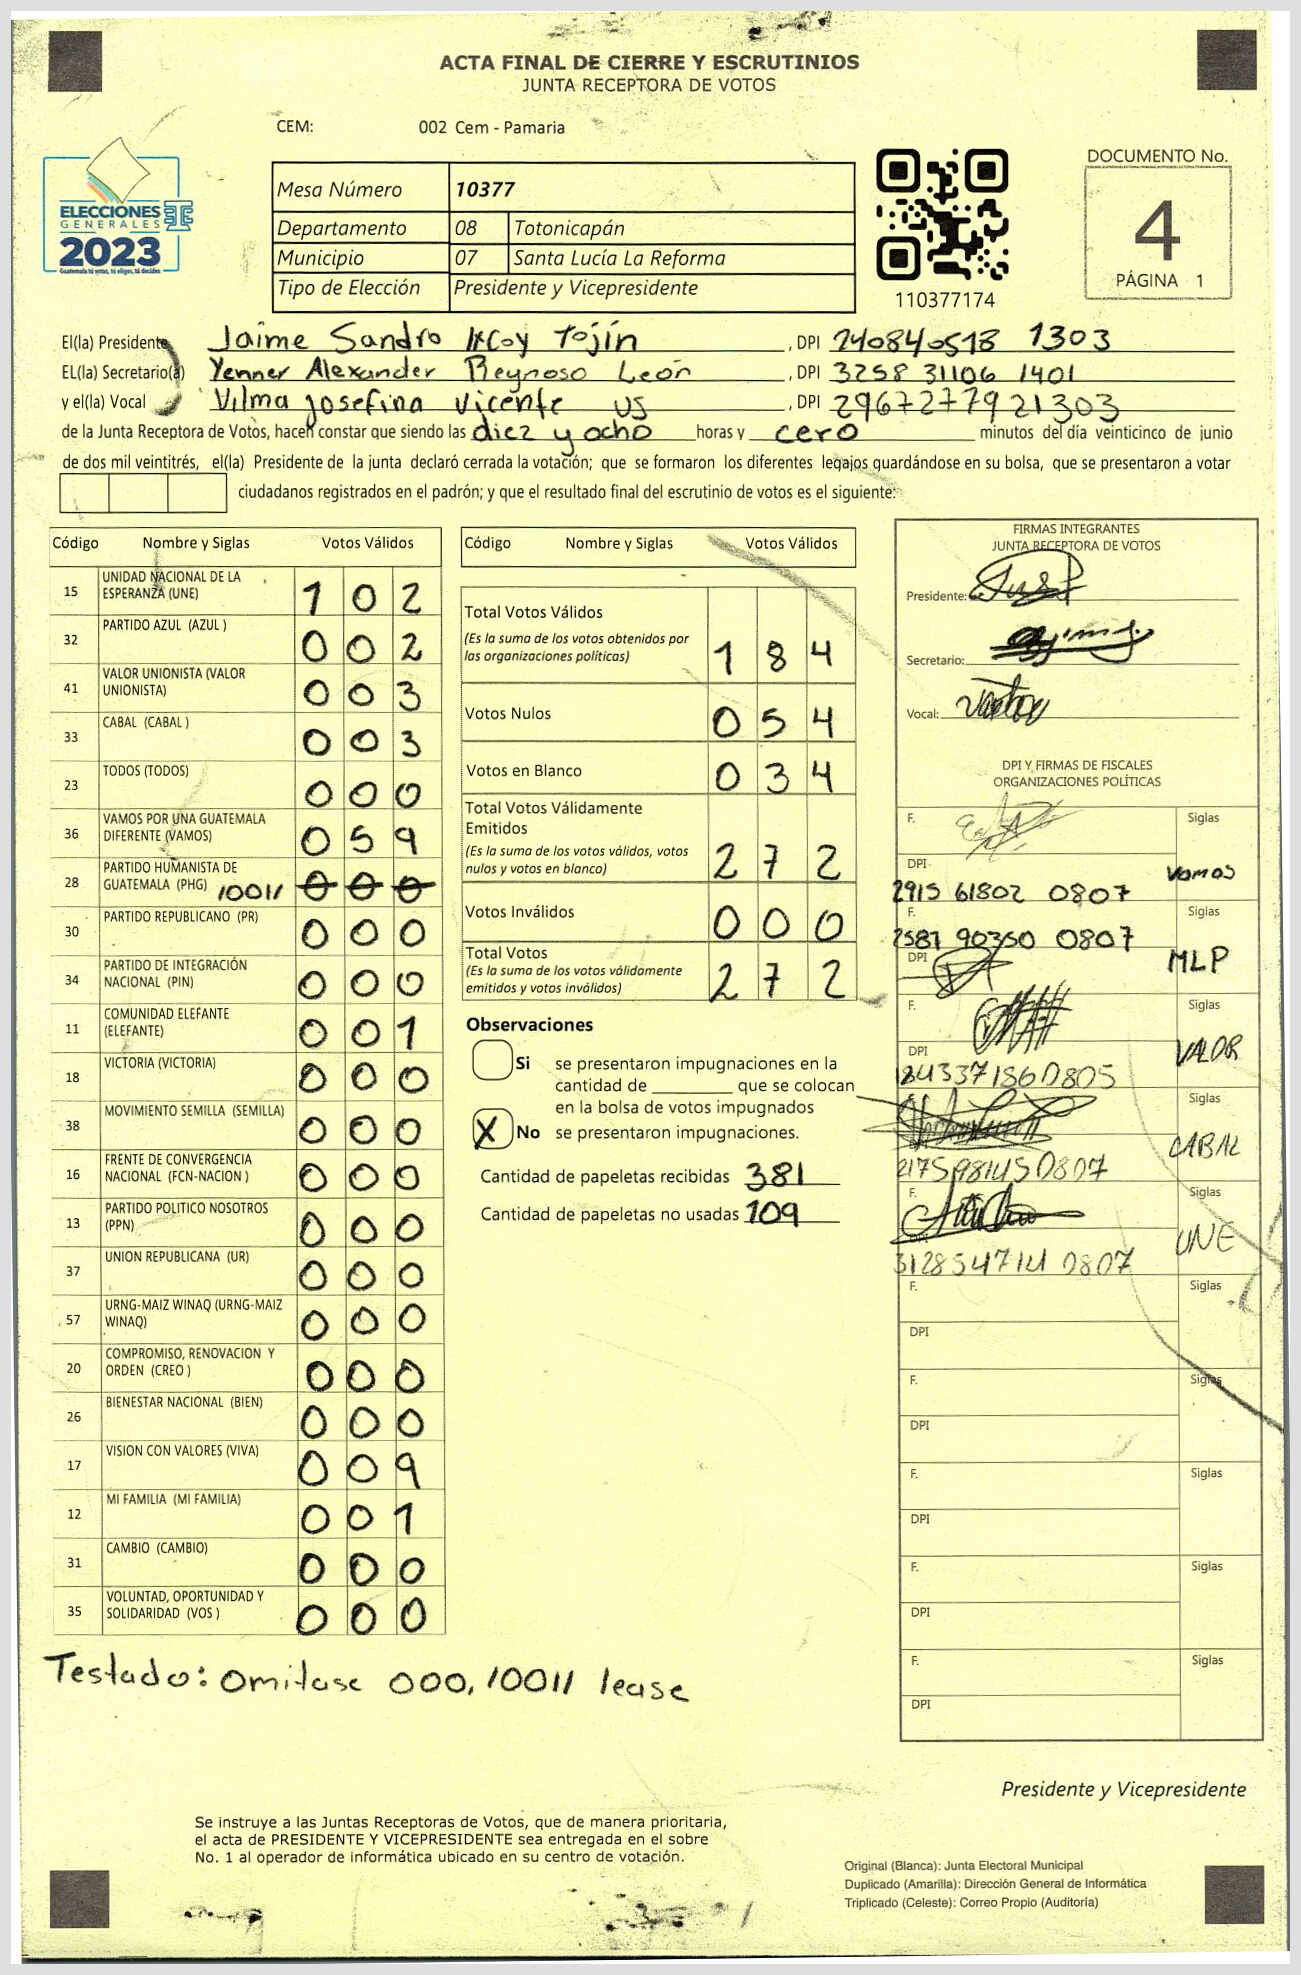 ACTA FINAL DE CIERRE Y ESCRUTINIOS
JUNTA RECEPTORA DE VOTOS
CEM: 002 Cem - Pamaria
ELECCIONES
GENERALES
2023
Guatemala tú votas, tú eliges, tú decides
Mesa Número 10377
Departamento 08 Totonicapán
Municipio 07 Santa Lucía La Reforma
Tipo de Elección Presidente y Vicepresidente
110377174
DOCUMENTO No.
4
PÁGINA 1
El(la) Presidente Jaime Sandro Ixcoy Tojín, DPI 240840518 1303
EL(la) Secretario(a) Yenner Alexander Reynoso León, DPI 3258 31106 1401
y el(la) Vocal Vilma Josefina Vicente US, DPI 2967277921303
de la Junta Receptora de Votos, hacen constar que siendo las diez y ocho horas y cero minutos del día veinticinco de junio
de dos mil veintitrés, el(la) Presidente de la junta declaró cerrada la votación; que se formaron los diferentes legajos guardándose en su bolsa, que se presentaron a votar
ciudadanos registrados en el padrón; y que el resultado final del escrutinio de votos es el siguiente:
Código Nombre y Siglas Votos Válidos
15 UNIDAD NACIONAL DE LA ESPERANZA (UNE) 1 0 2
32 PARTIDO AZUL (AZUL ) 0 0 2
41 VALOR UNIONISTA (VALOR UNIONISTA) 0 0 3
33 CABAL (CABAL ) 0 0 3
23 TODOS (TODOS) 0 0 0
36 VAMOS POR UNA GUATEMALA DIFERENTE (VAMOS) 0 5 9
28 PARTIDO HUMANISTA DE GUATEMALA (PHG) 10011 0 0 0
30 PARTIDO REPUBLICANO (PR) 0 0 0
34 PARTIDO DE INTEGRACIÓN NACIONAL (PIN) 0 0 0
11 COMUNIDAD ELEFANTE (ELEFANTE) 0 0 1
18 VICTORIA (VICTORIA) 0 0 0
38 MOVIMIENTO SEMILLA (SEMILLA) 0 0 0
16 FRENTE DE CONVERGENCIA NACIONAL (FCN-NACION ) 0 0 0
13 PARTIDO POLITICO NOSOTROS (PPN) 0 0 0
37 UNION REPUBLICANA (UR) 0 0 0
57 URNG-MAIZ WINAQ (URNG-MAIZ WINAQ) 0 0 0
20 COMPROMISO, RENOVACION Y ORDEN (CREO ) 0 0 0
26 BIENESTAR NACIONAL (BIEN) 0 0 0
17 VISION CON VALORES (VIVA) 0 0 9
12 MI FAMILIA (MI FAMILIA) 0 0 1
31 CAMBIO (CAMBIO) 0 0 0
35 VOLUNTAD, OPORTUNIDAD Y SOLIDARIDAD (VOS ) 0 0 0
Testado: Omitase 000, 10011 lease
Código Nombre y Siglas Votos Válidos
Total Votos Válidos
(Es la suma de los votos obtenidos por
las organizaciones políticas) 1 8 4
Votos Nulos 0 5 4
Votos en Blanco 0 3 4
Total Votos Válidamente
Emitidos
(Es la suma de los votos válidos, votos
nulos y votos en blanco) 2 7 2
Votos Inválidos 0 0 0
Total Votos
(Es la suma de los votos válidamente
emitidos y votos inválidos) 2 7 2
Observaciones
Si se presentaron impugnaciones en la
cantidad de ________ que se colocan
en la bolsa de votos impugnados
X No se presentaron impugnaciones.
Cantidad de papeletas recibidas 381
Cantidad de papeletas no usadas 109
FIRMAS INTEGRANTES
JUNTA RECEPTORA DE VOTOS
Presidente:
Secretario:
Vocal:
DPI Y FIRMAS DE FISCALES
ORGANIZACIONES POLÍTICAS
F. Siglas
DPI
2915 61802 0807 VAMOS
F. Siglas
2587 90350 0807
DPI MLP
F. Siglas
DPI VALOR
1843371860805
Siglas
CABAL
2175981450807
F. Siglas
UNE
3128547141 0807
F. Siglas
DPI
F. Siglas
DPI
F. Siglas
DPI
F. Siglas
DPI
F. Siglas
DPI
Presidente y Vicepresidente
Se instruye a las Juntas Receptoras de Votos, que de manera prioritaria,
el acta de PRESIDENTE Y VICEPRESIDENTE sea entregada en el sobre
No. 1 al operador de informática ubicado en su centro de votación.
Original (Blanca): Junta Electoral Municipal
Duplicado (Amarilla): Dirección General de Informática
Triplicado (Celeste): Correo Propio (Auditoría)